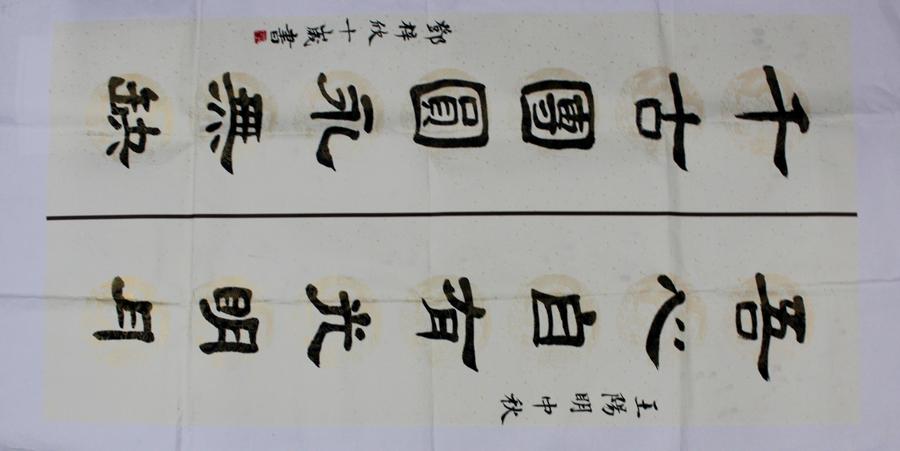 王陽明中秋
吾心自有光明月
千古團圓永無缺
鄧梓 十歲書